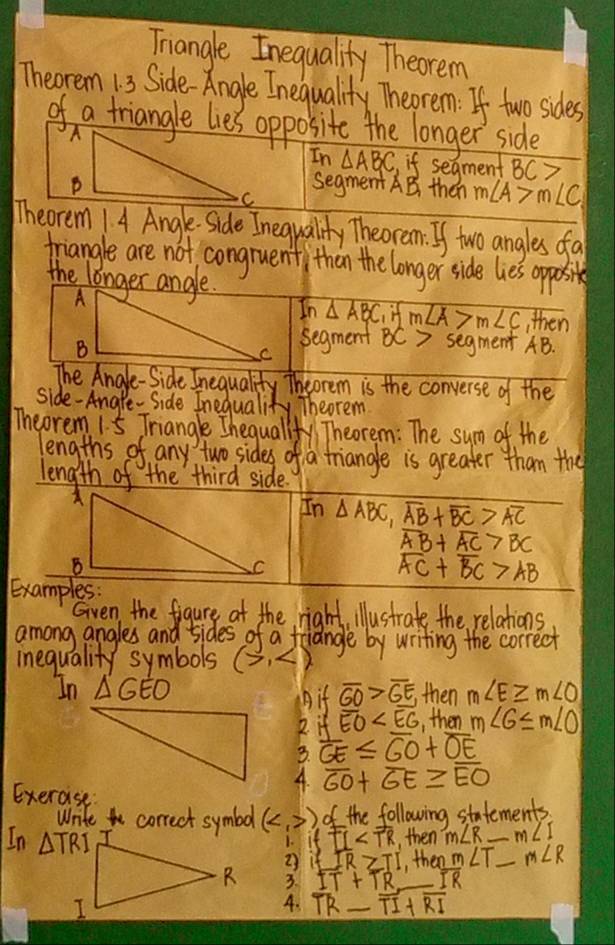 Triangle Inequality Theorem
Theorem 1.3 Side-Angle Inequality Theorem: If two sides
of a triangle lies opposite the longer side
A
B
C
In △ABC, if segment BC >
segment AB, then m∠A > m∠C.
Theorem 1.4 Angle-Side Inequality Theorem: If two angles of a
triangle are not congruent, then the longer side lies opposite
the longer angle.
A
B
C
In △ ABC, if m∠A > m∠C, then
segment BC > segment AB.
The Angle-Side Inequality Theorem is the converse of the
Side-Angle-Side Inequality Theorem
Theorem 1.5 Triangle Inequality Theorem: The sum of the
lengths of any two sides of a triangle is greater than the
length of the third side.
A
B
C
In △ ABC, A̅B̅ + B̅C̅ > A̅C̅
A̅B̅ + A̅C̅ > BC
A̅C̅ + B̅C̅ > AB
Examples:
Given the figure at the right, illustrate the relations
among angles and sides of a triangle by writing the correct
inequality symbols (>, <)
In △GEO
G
E
O
1) if G̅O̅ > G̅E̅, then m∠E ≥ m∠O
2. if E̅O̅ < E̅G̅, then m∠G ≤ m∠O
3. G̅E̅ ≤ G̅O̅ + O̅E̅
4. G̅O̅ + G̅E̅ ≥ E̅O̅
Exercise:
Write the correct symbol (<, >) of the following statements.
In △TRI
T
R
I
1. if T̅I̅ < T̅R̅, then m∠R __ m∠I
2) if I̅R̅ > T̅I̅, then m∠T __ m∠R
3. I̅T̅ + T̅R̅ __ I̅R̅
4. T̅R̅ __ T̅I̅ + R̅I̅